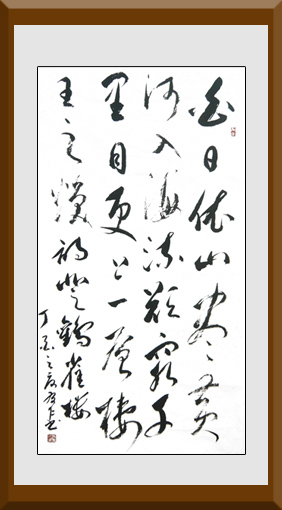 白日依山尽黄
河入海流欲穷千
里目更上一层楼
王之涣诗登鹳雀楼
丁亥之夏